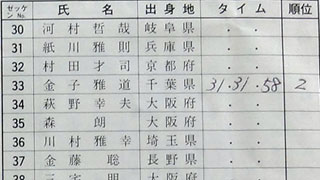 ゼッケンNo. 氏名 出身地 タイム 順位
30 河村哲哉 岐阜県 ・ ・
31 紙川雅則 兵庫県 ・ ・
32 村田才司 京都府 ・ ・
33 金子雅道 千葉県 31・31・58 2
34 萩野幸夫 大阪府 ・ ・
35 森朗 大阪府 ・ ・
36 川村雅幸 埼玉県 ・ ・
37 金藤聡 長野県 ・ ・
38 三宅明 大阪府